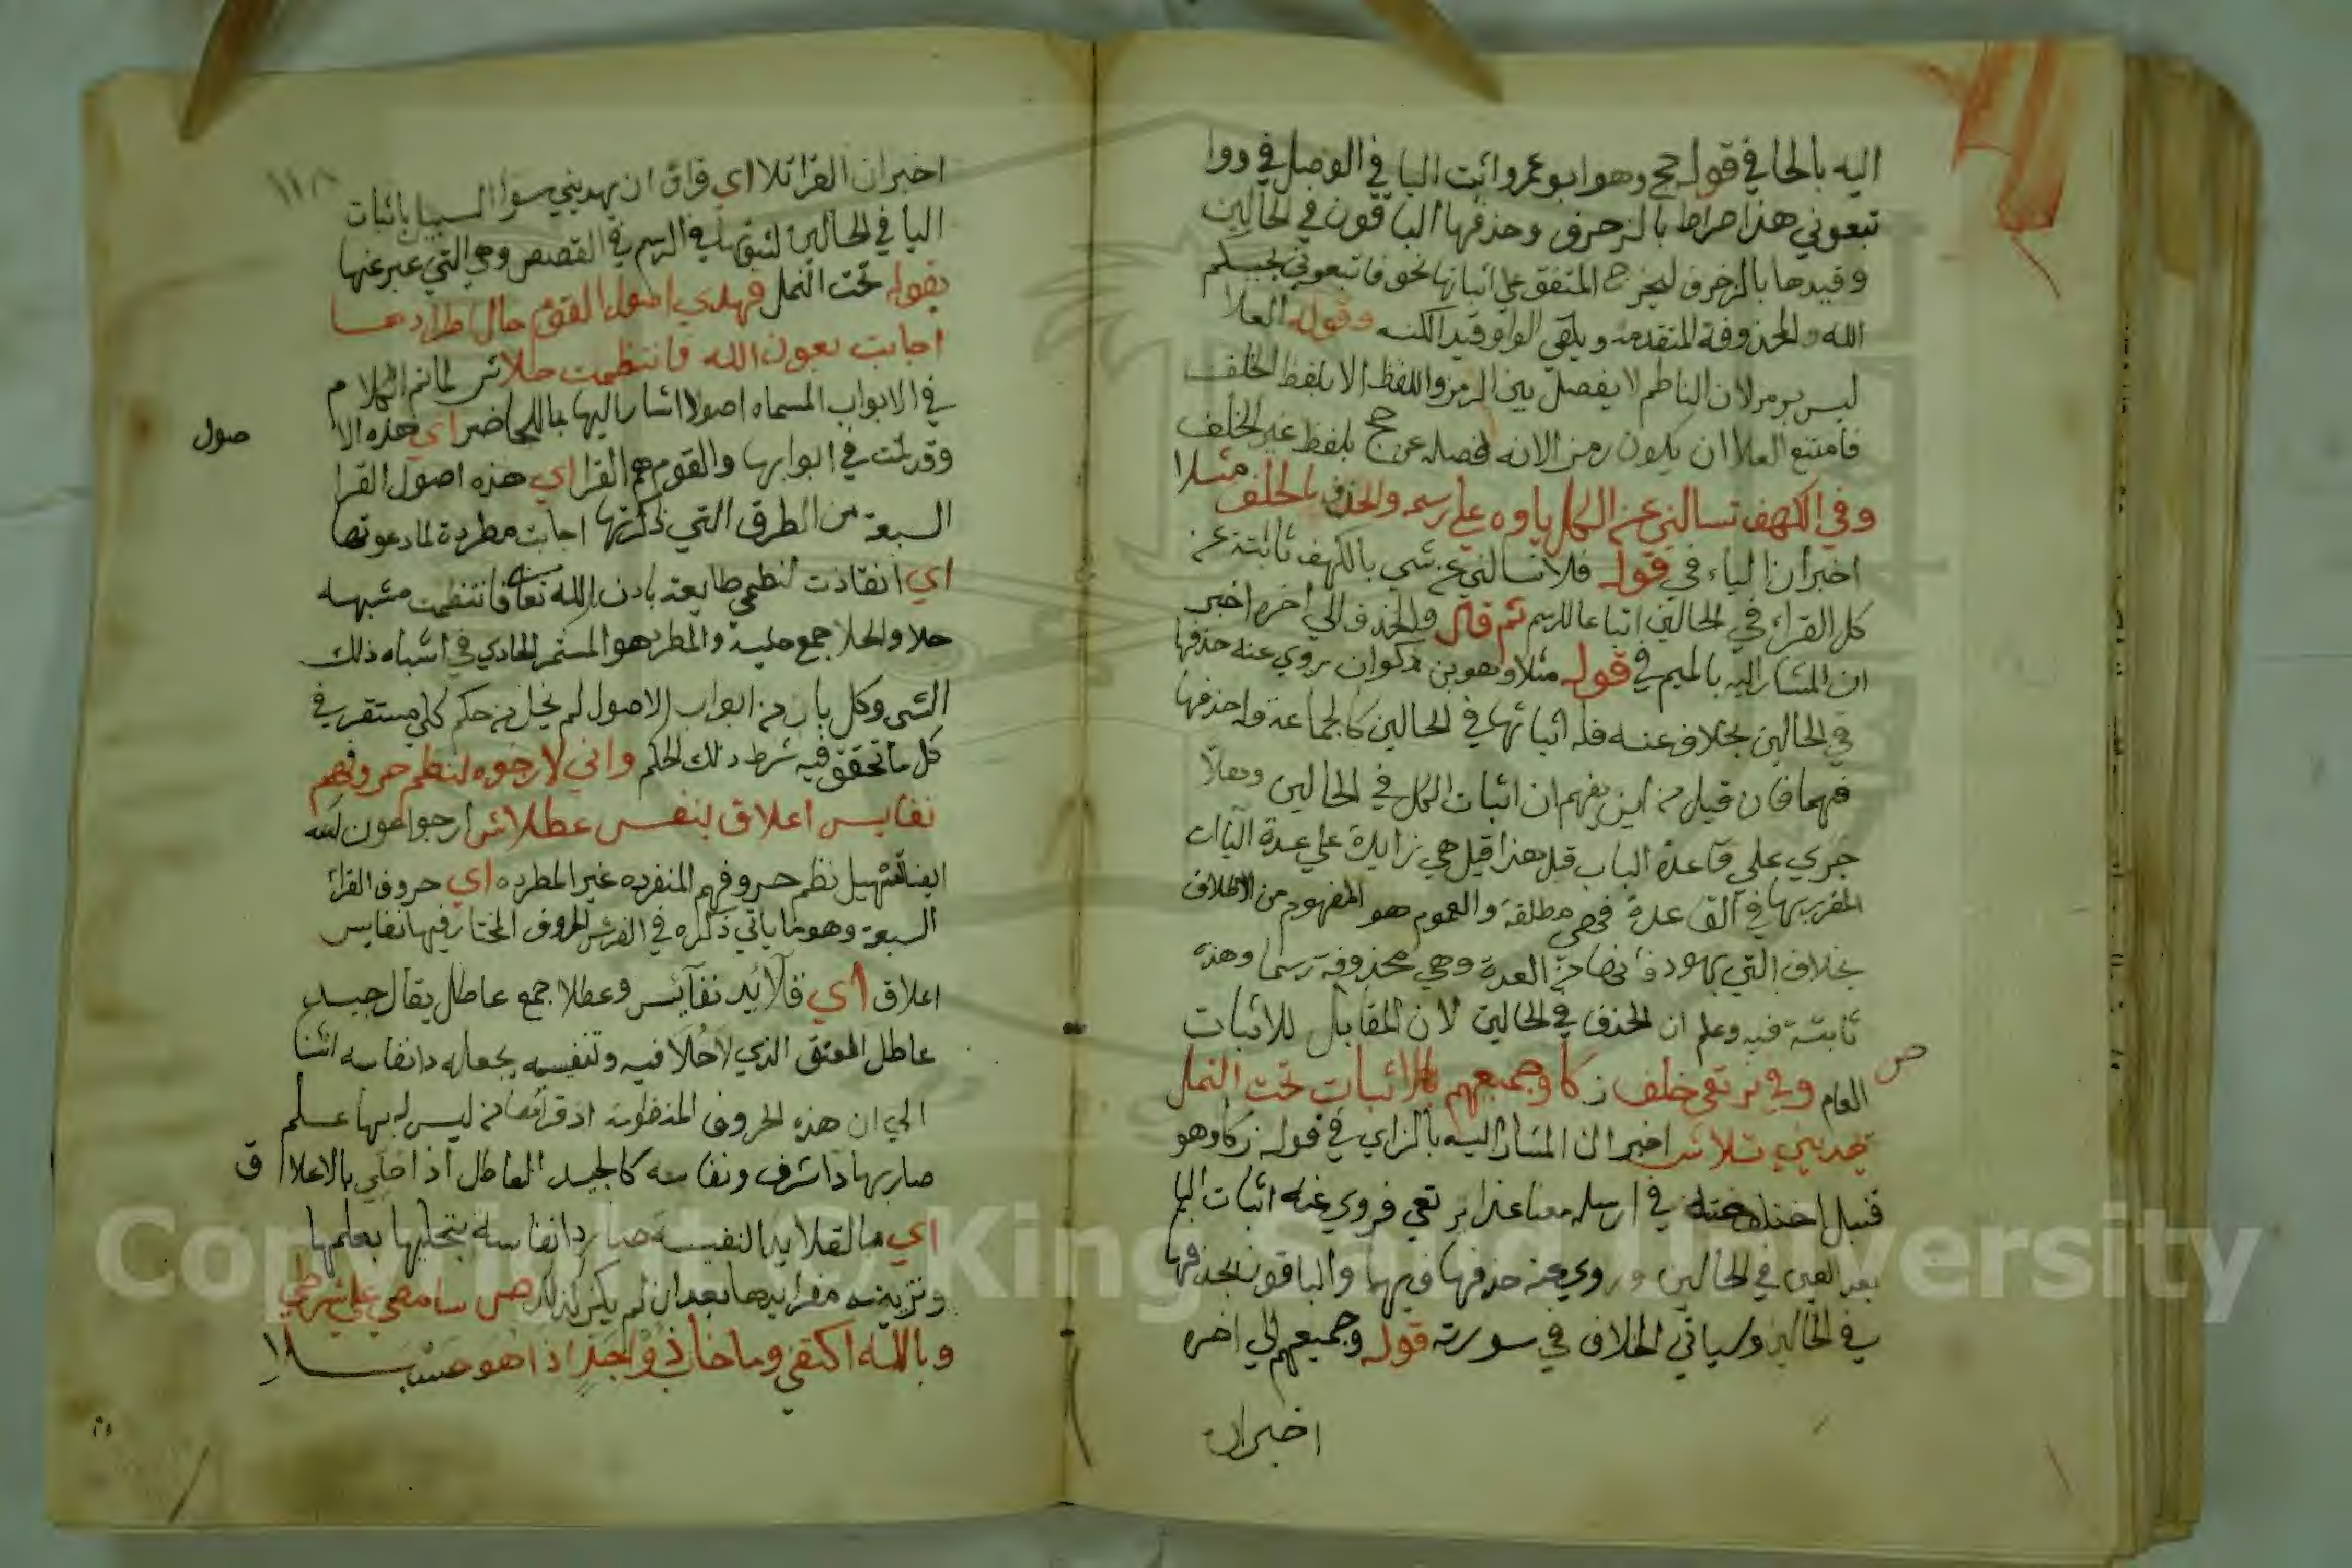 اليه بالحا في قوله حج وهو ابو عمرو اثبت اليا في الوصل في ووا
تبعوني هذا صراط بالزخرف وحذفها الباقون في الحالين
وقيدها بالزخرف ليخرج المتفق على اثباتها نحو فاتبعوني يحببكم
الله والمحذوفة المتقدمة ويلقي الواو قيد الكنه وقوله العلا
ليس برمز لان الناظم لا يفصل بين الرمز واللفظ الا بلفظ الخلف
فامتنع العلا ان يكون رمز الانه فصله عن حج بلفظ غير الخلف
وفي الكهف تسالني عن الكل ياوه علي رسمه والحذف بالخلف مثلا
اخبر ان الياء في قوله فلا تسالني عن شي بالكهف ثابتة عن
كل القراء في الحالين اتباعا للرسم ثم قال والحذف الي اخره اخبر
ان المشار اليه بالميم في قوله مثلا وهو بن ذكوان روي عنه حذفها
في الحالين بخلاف عنه فله اثباتها في الحالين كالجماعة وله حذفها
فيهما فان قيل من اين يفهم ان اثبات الكل في الحالين وهلا
جري علي قاعدة الباب قبل هذا قيل هي زايدة علي عدة الياات
المقرر بها في القاعدة فهي مطلقة والعموم هو المفهوم من الاطلاق
بخلاف التي بهود فانها من العدة وهي محذوفة رسما وهذه
ثابتة فيه وعلم ان الحذف في الحالين لان المقابل للاثبات
ص
العام وفي نرتعي خلف زكا وجميعهم بالاثبات تحت النمل
يهديني تلا ش اخبر ان المشار اليه بالزاي في قوله زكا وهو
قنبل اختلف عنه في ارسله معنا غدا نرتعي فروي عنه اثبات اليا
بعد العين في الحالين وروي عنه حذفها فيهما والباقون بحذفها
في الحالين وسياتي الخلاف في سورته قوله وجميعهم الي اخره
اخبر ان
١١٨
اخبر ان القرا تلا اي قرا ان يهديني سوا السبيل باثبات
اليا في الحالين لثبوتها في الرسم في القصص وهي التي عبر عنها
بقوله تحت النمل فهذي اصول القوم حال اطرادها
اجابت بعون الله فانتظمت حلا ش لما تم الكلام
في الابواب المسماه اصولا اشار اليها بالمحاضر اي هذه الا
صول
وقد تمت في ابوابها والقوم هم القرا اي هذه اصول القرا
السبعة من الطرق التي ذكرتها اجابت مطردة لما دعوتها
اي انقاذت لنظمي طايعة باذن الله تعالى فانتظمت مشبهه
حلا والحلا جمع حلية والمطرد هو المستمر الجاري في اشباه ذلك
الشي وكل باب من ابواب الاصول لم يخل من حكم كلي مستقر في
كل ما تحقق فيه شرط ذلك الحكم واني لارجوه لنظم حروفهم
نفايس اعلاق تنفس عطلا ش ارجوا عون الله
ايضا لتسهيل نظم حروفهم المنفرده غير المطرده اي حروف القراء
السبعة وهو ما ياتي ذكره في الفرش الحروف المختار فيها نفايس
اعلاق اي قلائد نفائس وعطلا جمع عاطل يقال جيد
عاطل للعنق الذي لا حلا فيه وتنفيسه يجعله ذا نفاسه اشا
الي ان هذه الحروف المنظومة اذ قراها من ليس له بها علم
صار بها ذا شرف ونفاسه كالجيد العاطل اذا حلي بالاعلا ق
اي بالقلايد النفيسة صار ذا نفاسة بتحليها بعلمها
وتزينه مفرايدها بعد ان لم يكن كذلك ص سامضي علي شرطي
وبالله اكتفي وما خاب ذو جد اذا هو حسبلا
Copyright © King Saud University